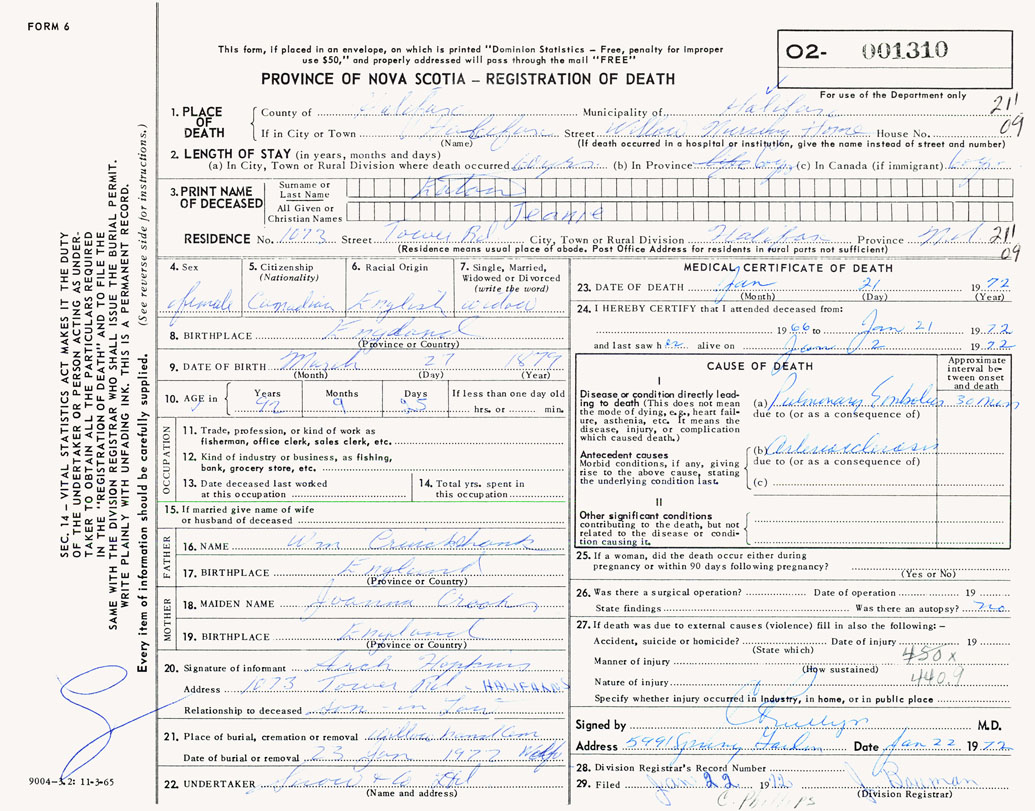 FORM 6
This form, if placed in an envelope, on which is printed "Dominion Statistics – Free, penalty for improper
use $50," and properly addressed will pass through the mail "FREE"
PROVINCE OF NOVA SCOTIA – REGISTRATION OF DEATH
O2- 001310
For use of the Department only
211
09
1. PLACE OF DEATH
County of Halifax Municipality of Halifax
If in City or Town Halifax Street Willow Nursing Home House No.
(Name) (If death occurred in a hospital or institution, give the name instead of street and number)
2. LENGTH OF STAY (in years, months and days)
(a) In City, Town or Rural Division where death occurred 60 yrs (b) In Province 60 yrs (c) In Canada (if immigrant) 60 yrs
3. PRINT NAME OF DECEASED
Surname or Last Name Eaton
All Given or Christian Names Jeanie
RESIDENCE No. 1073 Street Tower Rd City, Town or Rural Division Halifax Province N.S.
(Residence means usual place of abode. Post Office Address for residents in rural ports not sufficient)
211
09
4. Sex female
5. Citizenship (Nationality) Canadian
6. Racial Origin English
7. Single, Married, Widowed or Divorced (write the word) widow
8. BIRTHPLACE England
(Province or Country)
9. DATE OF BIRTH March 27 1879
(Month) (Day) (Year)
10. AGE in Years 92 Months 9 Days 25 If less than one day old hrs. or min.
OCCUPATION
11. Trade, profession, or kind of work as
fisherman, office clerk, sales clerk, etc.
12. Kind of industry or business, as fishing,
bank, grocery store, etc.
13. Date deceased last worked
at this occupation
14. Total yrs. spent in
this occupation
15. If married give name of wife
or husband of deceased
FATHER
16. NAME Wm Cruickshank
17. BIRTHPLACE England
(Province or Country)
MOTHER
18. MAIDEN NAME Joanna Crook
19. BIRTHPLACE England
(Province or Country)
20. Signature of informant Hopkins
Address 1073 Tower Rd. HALIFAX NS
Relationship to deceased Son-in-law
21. Place of burial, cremation or removal Willow
Date of burial or removal 23 Jan 1972 Wolfv
22. UNDERTAKER Snow & Co Ltd
(Name and address)
MEDICAL CERTIFICATE OF DEATH
23. DATE OF DEATH Jan 21 1972
(Month) (Day) (Year)
24. I HEREBY CERTIFY that I attended deceased from:
1966 to Jan 21 1972
and last saw her alive on Jan 2 1972
CAUSE OF DEATH
Approximate interval between onset and death
I
Disease or condition directly leading to death (This does not mean the mode of dying, e.g., heart failure, asthenia, etc. It means the disease, injury, or complication which caused death.)
(a) Pulmonary Embolus 30 mins
due to (or as a consequence of)
Antecedent causes
Morbid conditions, if any, giving rise to the above cause, stating the underlying condition last.
(b) Arteriosclerosis
due to (or as a consequence of)
(c)
II
Other significant conditions
contributing to the death, but not related to the disease or condition causing it.
25. If a woman, did the death occur either during
pregnancy or within 90 days following pregnancy?
(Yes or No)
26. Was there a surgical operation? Date of operation 19
State findings Was there an autopsy? no
27. If death was due to external causes (violence) fill in also the following: –
Accident, suicide or homicide? Date of injury 19
(State which)
450X
Manner of injury
(How sustained)
440.9
Nature of injury
Specify whether injury occurred in industry, in home, or in public place
Signed by M.D.
Address 5991 Spring Garden Date Jan 22 1972
28. Division Registrar's Record Number
29. Filed Jan 22 1972 J. Bauman
(Division Registrar)
C. Phillips
SEC. 14 – VITAL STATISTICS ACT MAKES IT THE DUTY
OF THE UNDERTAKER OR PERSON ACTING AS UNDER-
TAKER TO OBTAIN ALL THE PARTICULARS REQUIRED
IN THE "REGISTRATION OF DEATH" AND TO FILE THE
SAME WITH THE DIVISION REGISTRAR WHO SHALL ISSUE THE BURIAL PERMIT.
WRITE PLAINLY WITH UNFADING INK. THIS IS A PERMANENT RECORD.
Every item of information should be carefully supplied. (See reverse side for instructions.)
9004-3.2: 11-3-65